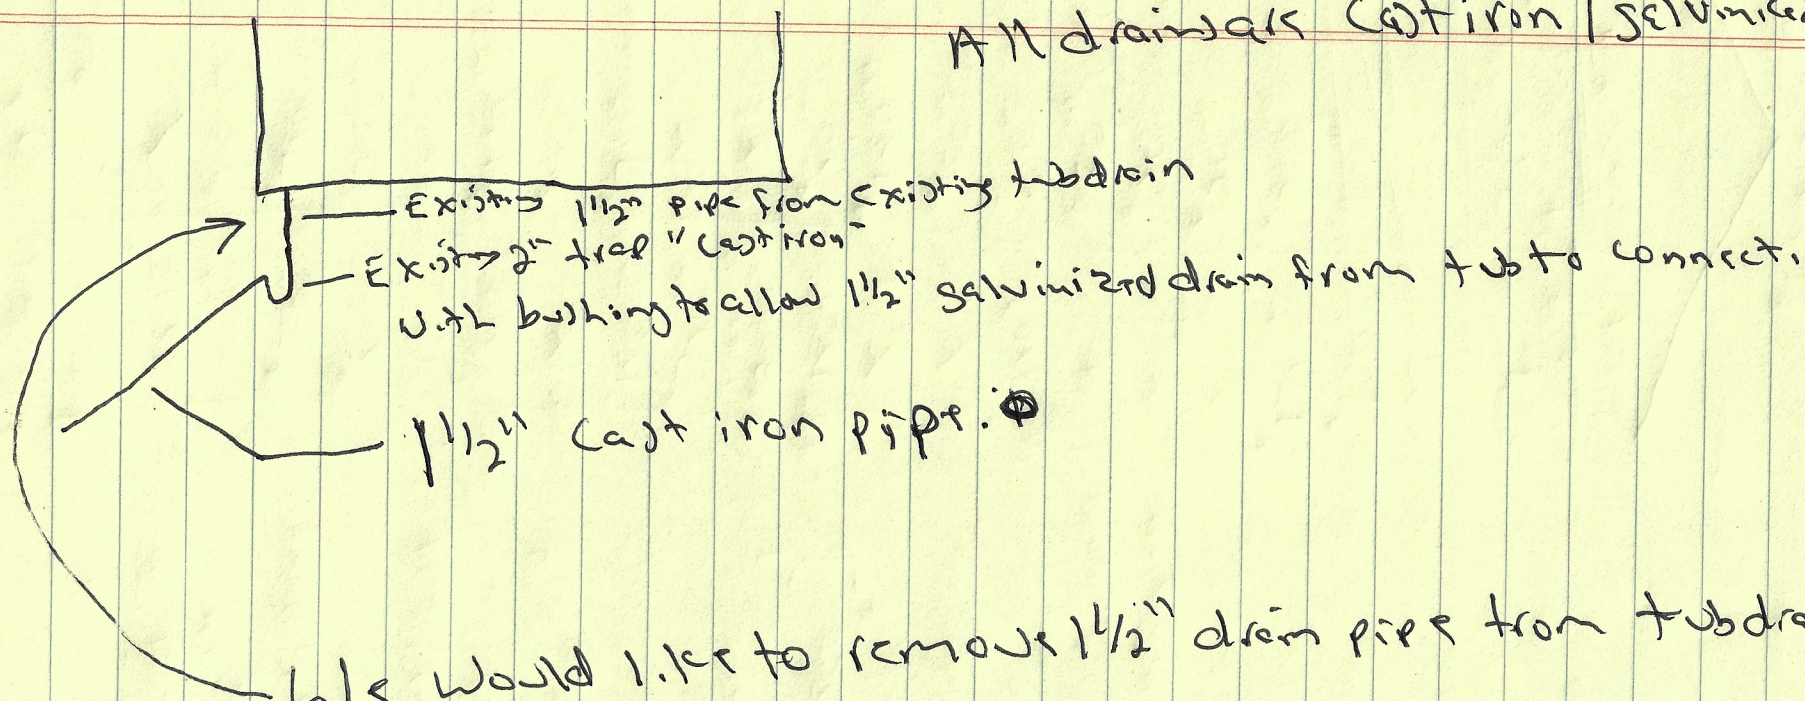 All drains are Cast iron / galvinize
Existing 1 1/2" pipe from existing tub drain
Existing 2" trap "Cast iron"
with bushing to allow 1 1/2" galvinized drain from tub to connect.
1 1/2" Cast iron pipe.
We would like to remove 1 1/2" drain pipe from tub dra